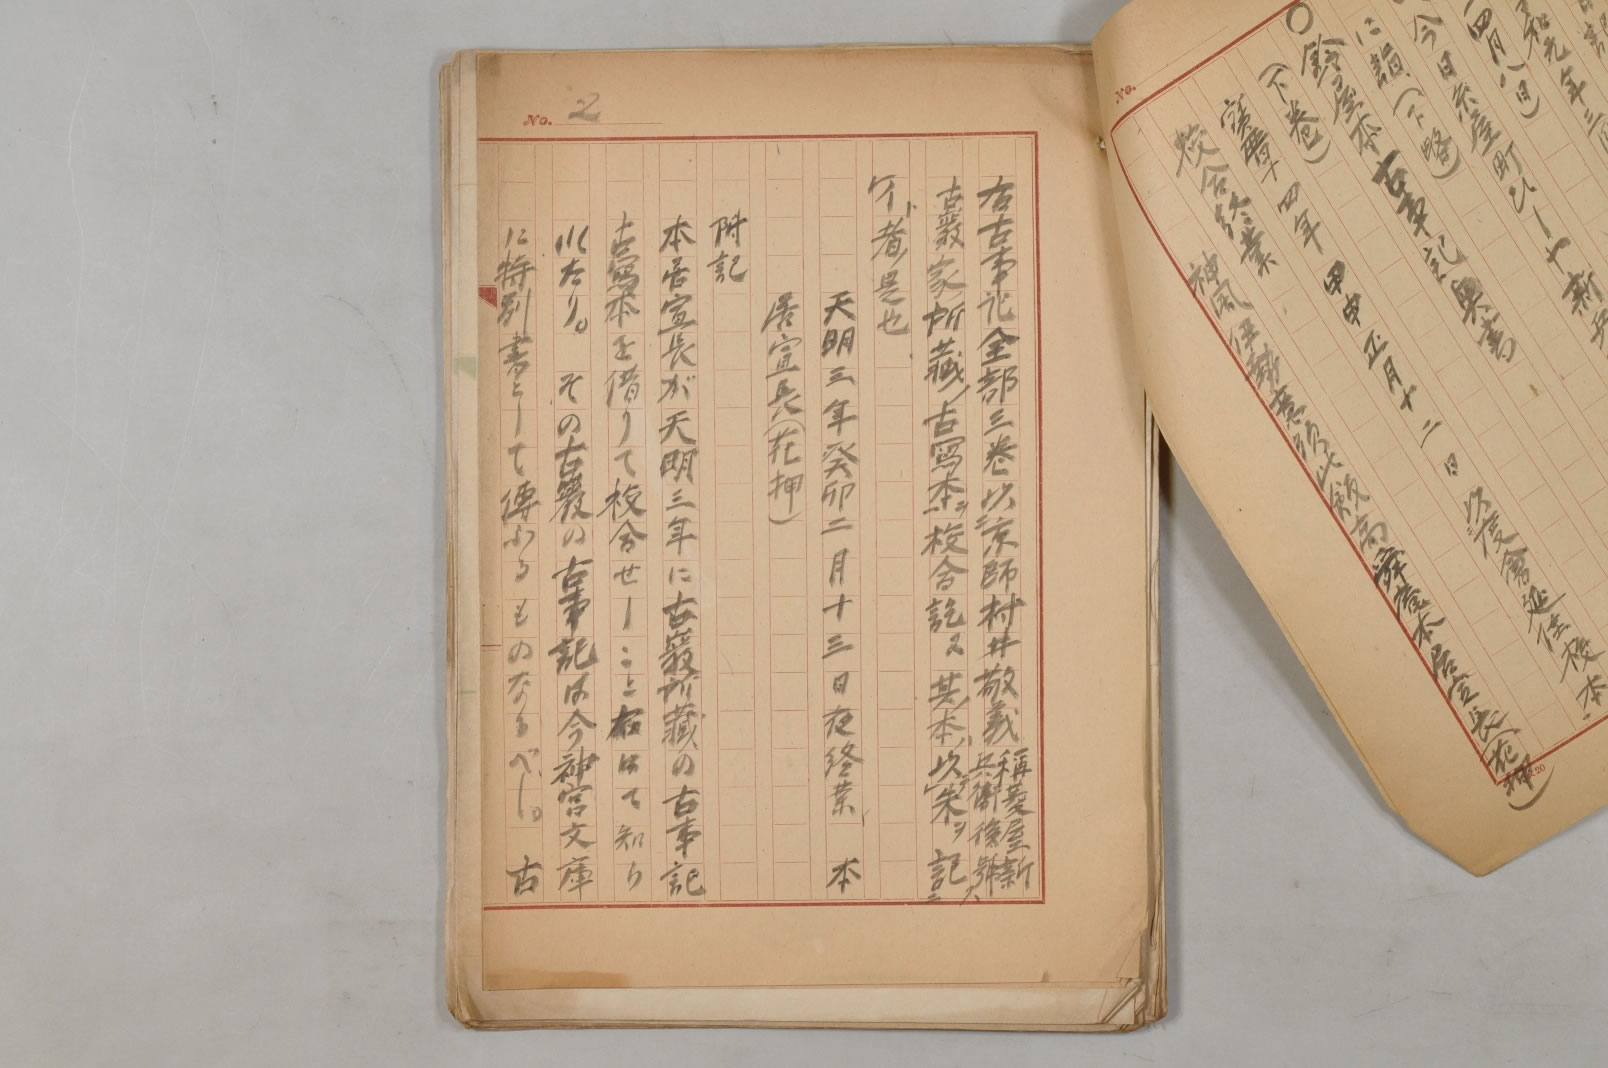 No. 2
右古事記全部三巻以ニ京師村井敬義
稱菱屋新
兵衛後號ス
古巖家所藏ノ古寫本ヲ校合訖ヌ其ノ本ハ以朱ヲ記ニ
イト者是也
天明三年癸卯二月十三日夜終業 本
居宣長(花押)
附記
本居宣長が天明三年に古巖所藏の古事記
古寫本を借りて校合せしこと右にて知り
たり。その古巖の古事記は今神宮文庫
に特別書として傳ふるものなるべし。 古
和元年三月
四月八日)
今日糸屋町ひしや新兵
に詣(下略)
○鈴屋本古事記奥書
(下巻)
寳暦十四年甲申正月十二日以度會延佳校本
校合終業 神風伊勢意須比飯高 舜庵本居宣長(花押)
No.